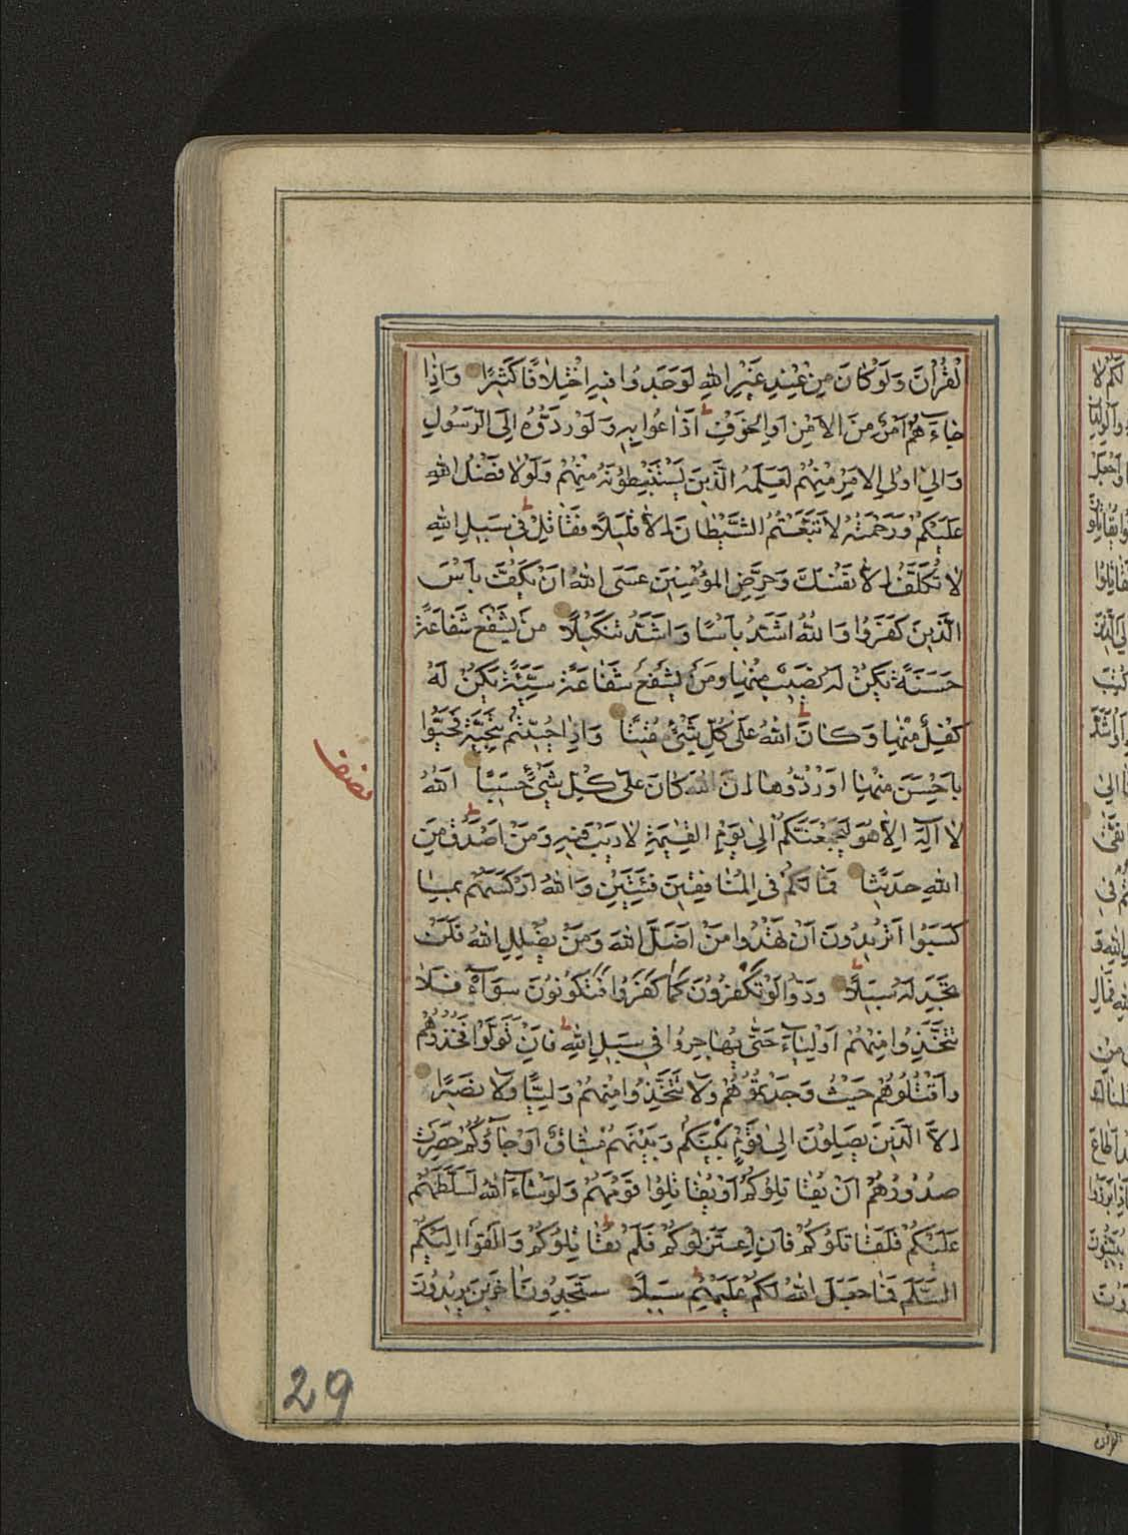 الْقُرْاٰنَ وَلَوْ كَانَ مِنْ عِنْدِ غَيْرِ اللهِ لَوَجَدُوا فِيهِ اخْتِلَافًا كَثِيرًا وَاِذَا
جَاءَهُمْ اَمْرٌ مِنَ الْاَمْنِ اَوِ الْخَوْفِ اَذَاعُوا بِهِ وَلَوْ رَدُّوهُ اِلَى الرَّسُولِ
وَاِلٰى اُولِي الْاَمْرِ مِنْهُمْ لَعَلِمَهُ الَّذِينَ يَسْتَنْبِطُونَهُ مِنْهُمْ وَلَوْلَا فَضْلُ اللهِ
عَلَيْكُمْ وَرَحْمَتُهُ لَاتَّبَعْتُمُ الشَّيْطَانَ اِلَّا قَلِيلًا فَقَاتِلْ فِي سَبِيلِ اللهِ
لَا تُكَلَّفُ اِلَّا نَفْسَكَ وَحَرِّضِ الْمُؤْمِنِينَ عَسَى اللهُ اَنْ يَكُفَّ بَأْسَ
الَّذِينَ كَفَرُوا وَاللهُ اَشَدُّ بَأْسًا وَاَشَدُّ تَنْكِيلًا مَنْ يَشْفَعْ شَفَاعَةً
حَسَنَةً يَكُنْ لَهُ نَصِيبٌ مِنْهَا وَمَنْ يَشْفَعْ شَفَاعَةً سَيِّئَةً يَكُنْ لَهُ
كِفْلٌ مِنْهَا وَكَانَ اللهُ عَلٰى كُلِّ شَيْءٍ مُقِيتًا وَاِذَا حُيِّيتُمْ بِتَحِيَّةٍ فَحَيُّوا
بِاَحْسَنَ مِنْهَا اَوْ رُدُّوهَا اِنَّ اللهَ كَانَ عَلٰى كُلِّ شَيْءٍ حَسِيبًا اَللهُ
لَا اِلٰهَ اِلَّا هُوَ لَيَجْمَعَنَّكُمْ اِلٰى يَوْمِ الْقِيٰمَةِ لَا رَيْبَ فِيهِ وَمَنْ اَصْدَقُ مِنَ
اللهِ حَدِيثًا فَمَا لَكُمْ فِي الْمُنَافِقِينَ فِئَتَيْنِ وَاللهُ اَرْكَسَهُمْ بِمَا
كَسَبُوا اَتُرِيدُونَ اَنْ تَهْدُوا مَنْ اَضَلَّ اللهُ وَمَنْ يُضْلِلِ اللهُ فَلَنْ
تَجِدَ لَهُ سَبِيلًا وَدُّوا لَوْ تَكْفُرُونَ كَمَا كَفَرُوا فَتَكُونُونَ سَوَاءً فَلَا
تَتَّخِذُوا مِنْهُمْ اَوْلِيَاءَ حَتّٰى يُهَاجِرُوا فِي سَبِيلِ اللهِ فَاِنْ تَوَلَّوْا فَخُذُوهُمْ
وَاقْتُلُوهُمْ حَيْثُ وَجَدْتُمُوهُمْ وَلَا تَتَّخِذُوا مِنْهُمْ وَلِيًّا وَلَا نَصِيرًا
اِلَّا الَّذِينَ يَصِلُونَ اِلٰى قَوْمٍ بَيْنَكُمْ وَبَيْنَهُمْ مِيثَاقٌ اَوْ جَاؤُكُمْ حَصِرَتْ
صُدُورُهُمْ اَنْ يُقَاتِلُوكُمْ اَوْ يُقَاتِلُوا قَوْمَهُمْ وَلَوْ شَاءَ اللهُ لَسَلَّطَهُمْ
عَلَيْكُمْ فَلَقَاتَلُوكُمْ فَاِنِ اعْتَزَلُوكُمْ فَلَمْ يُقَاتِلُوكُمْ وَاَلْقَوْا اِلَيْكُمُ
السَّلَمَ فَمَا جَعَلَ اللهُ لَكُمْ عَلَيْهِمْ سَبِيلًا سَتَجِدُونَ اٰخَرِينَ يُرِيدُونَ
نصف
29